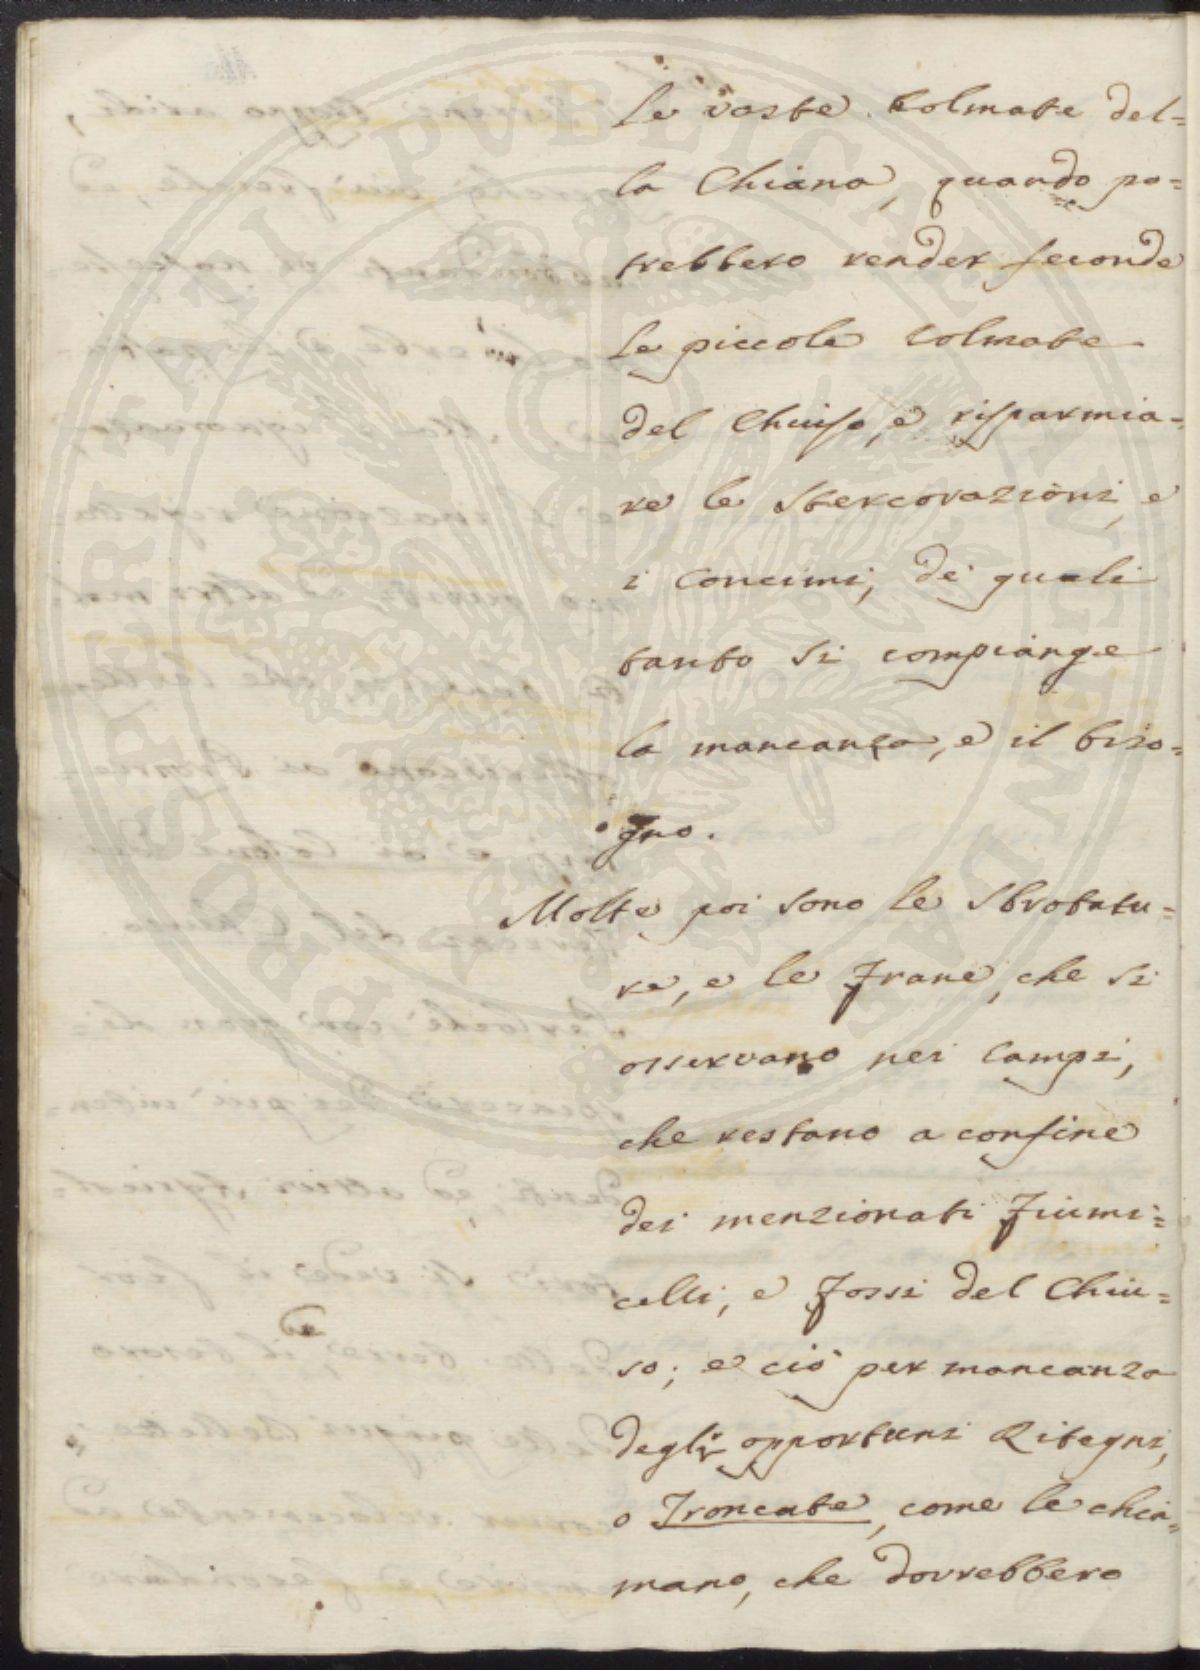 Le vaste Colmate del=
la Chiana, quando po=
trebbero render feconde
le piccole Colmate
del Chiuso, e risparmia=
re le Stercorazioni, e
i Concimi, de' quali
tanto si compiange
la mancanza, e il biso=
gno.
Molte poi sono le Sbrotatu=
re, e le Frane, che si
osservano nei Campi,
che restano a confine
dei menzionati Fiumi=
celli, e Fossi del Chiu=
so; e ciò per mancanza
degli opportuni Ritegni,
o Troncate, come le chia=
mano, che dovrebbero
PROSPERITATI PUBLICAE AUGENDAE